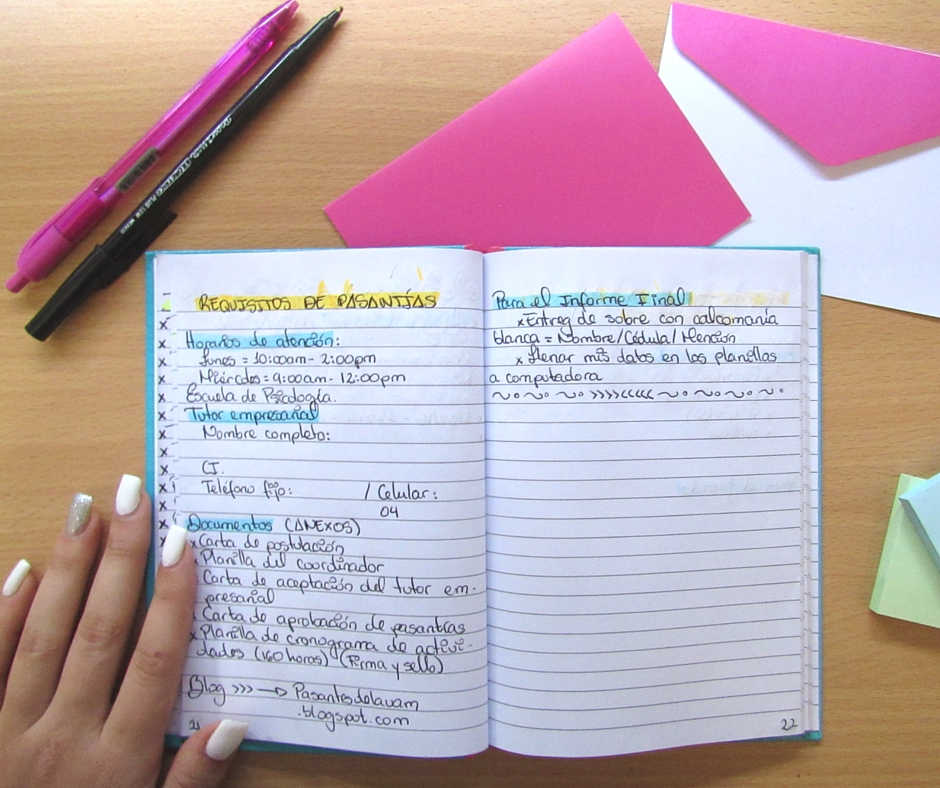 REQUISITOS DE PASANTÍAS
Horarios de atención:
Lunes = 10:00am - 2:00pm
Miércoles = 9:00am - 12:00pm
Escuela de Psicología.
Tutor empresarial
Nombre completo:
CI.
Teléfono fijo: / Celular:
04
Documentos (ANEXOS)
x Carta de postulación
x Planilla del coordinador
x Carta de aceptación del tutor em-
presarial
x Carta de aprobación de pasantías
x Planilla de cronograma de activi-
dades (160 horas) (Firma y sello)
Blog >>> → Pasantesdelavam
.blogspot.com
21
Para el Informe Final
x Entreg de sobre con calcomanía
blanca = Nombre/Cédula/Mención
x Llenar mis datos en las planillas
a computadora
22